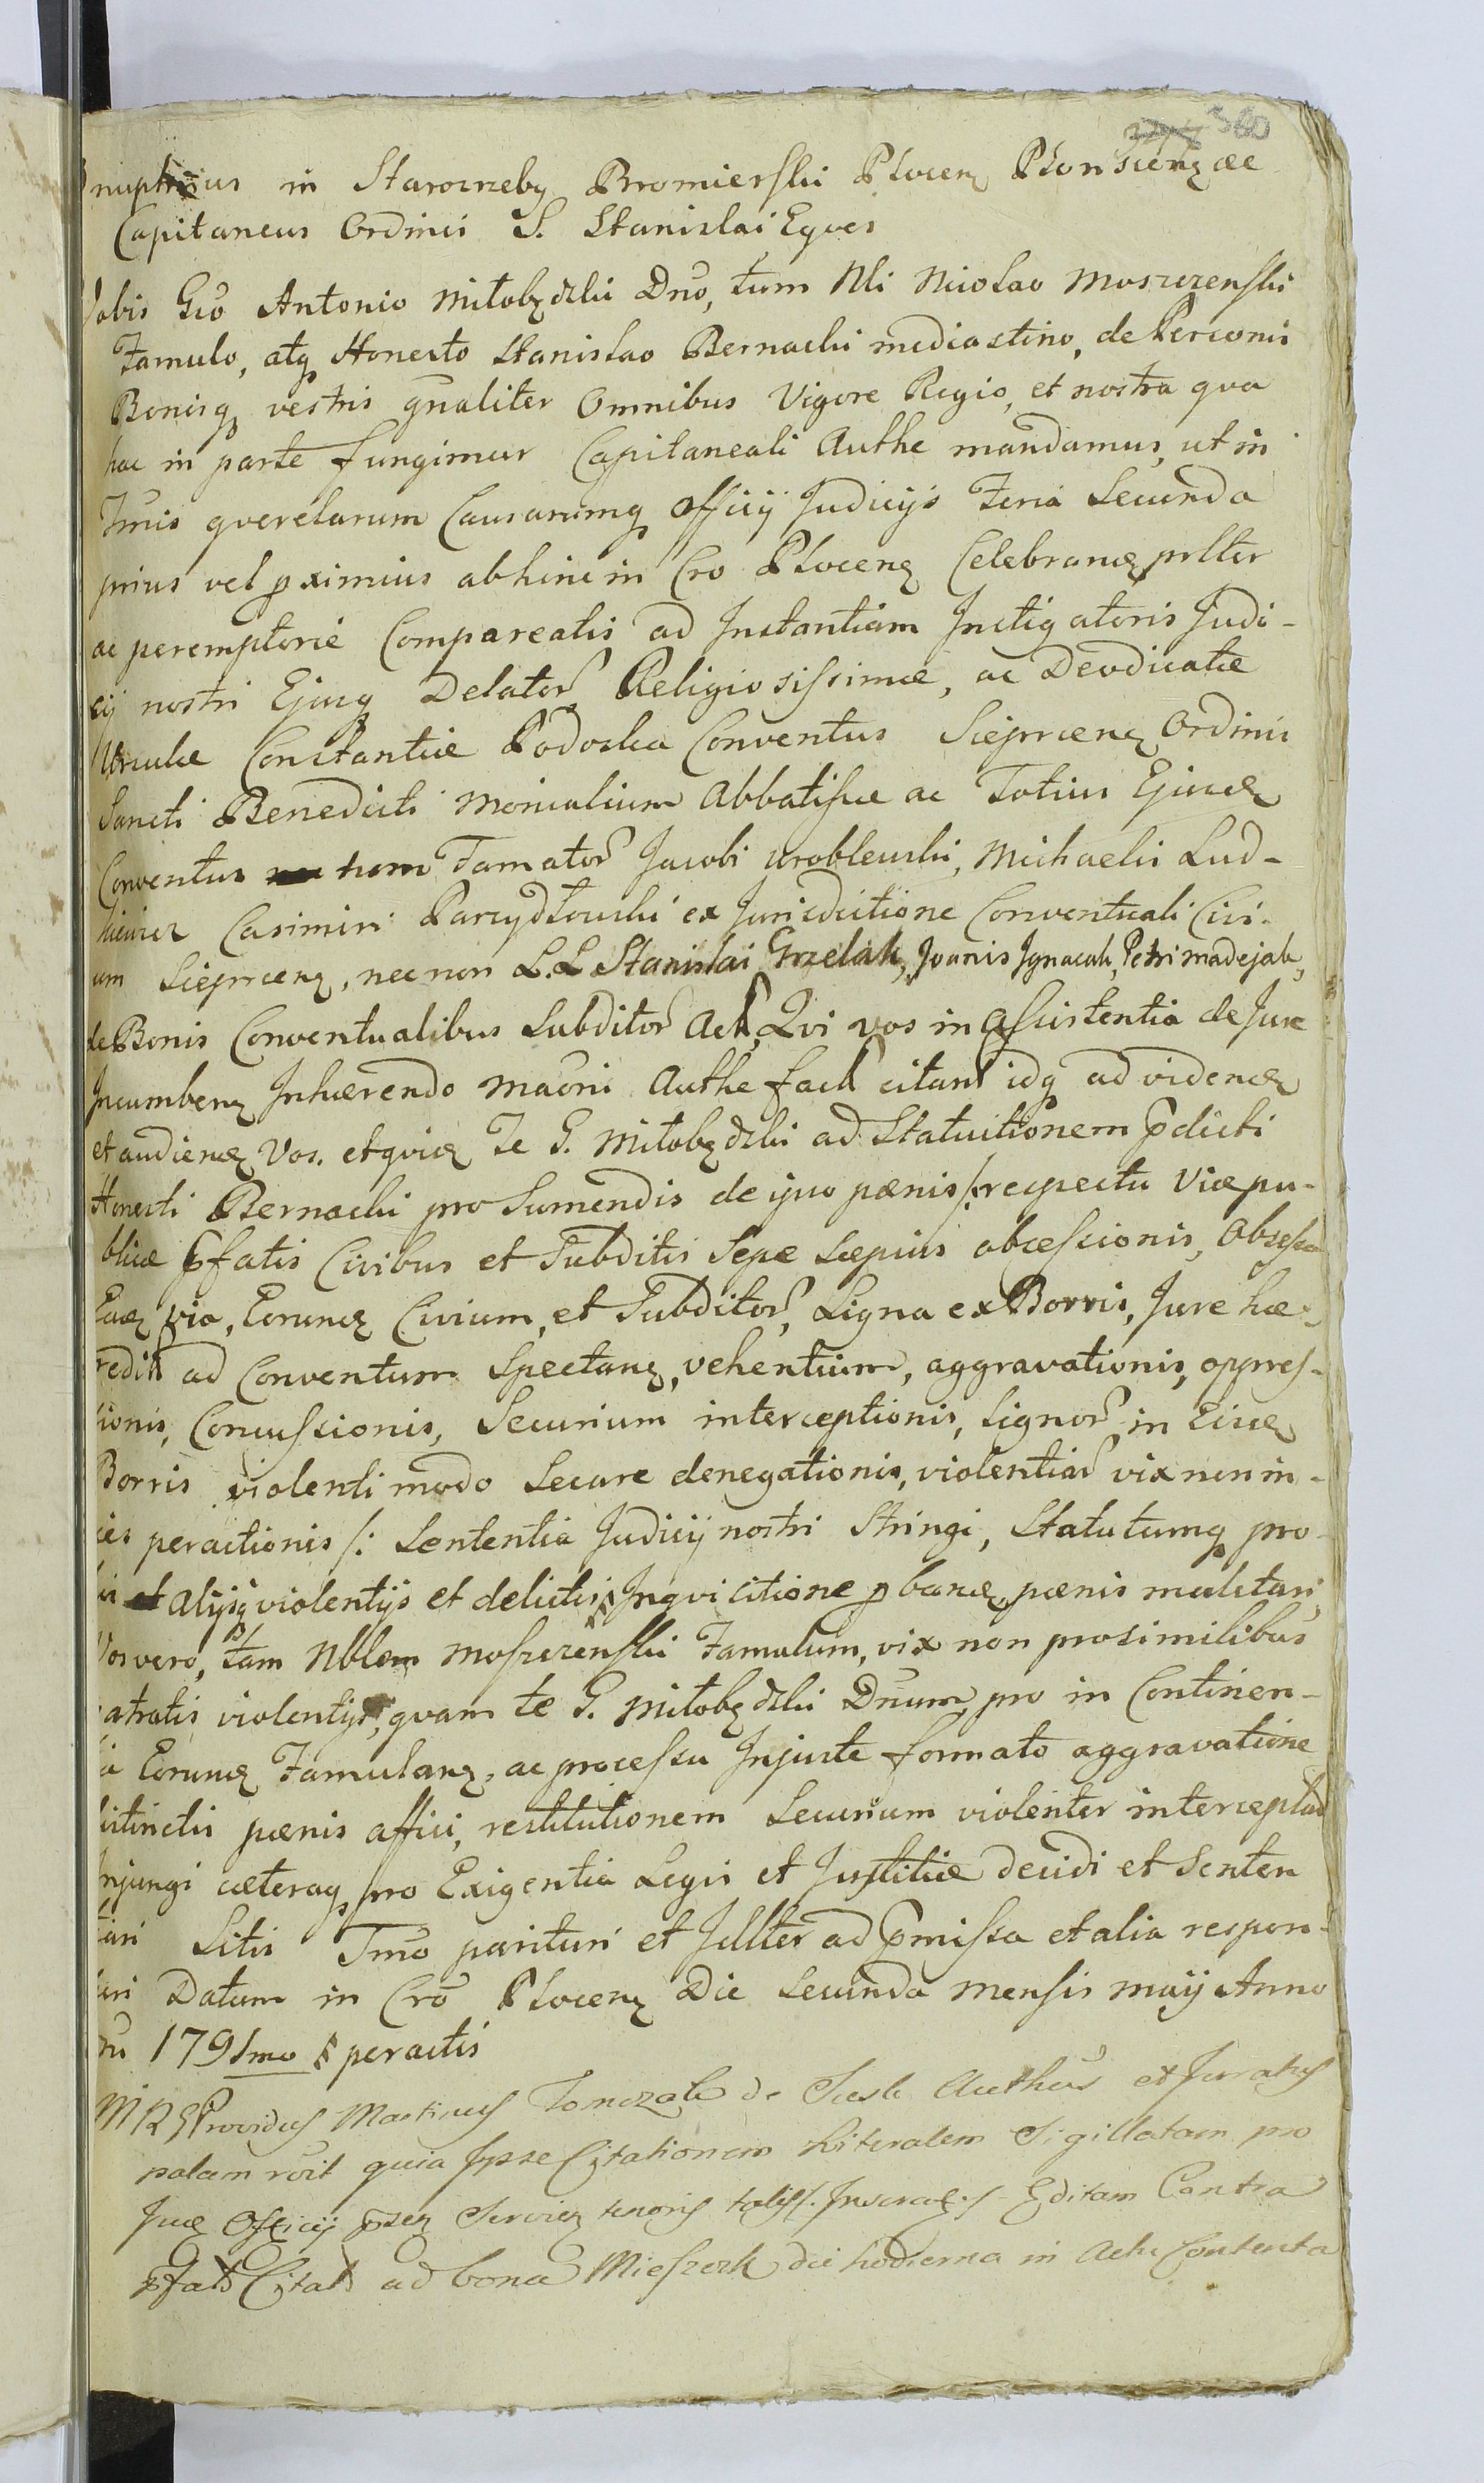 380
nuphrius in Starorzeby Bromierski Płocenz Płonscenz ac
Capitaneus Ordinis S. Stanislai Eques
Vobis Gso Antonio Miłobędzki Dno, tum Nli Nicolao Moszczenski
Famulo, atq Honesto Stanislao Bernacki mediastino, de Personis
Bonisq vestris gnaliter Omnibus Vigore Regio, et nostra qva
hac in parte fungimur Capitaneali Authe mandamus, ut in
Tmis qverelarum Causarumq Officij Judicijs Feria Secunda
prius vel pximius abhinc in Cro Płocenz Celebrandz prlter
ac peremptorie Compareatis ad Instantiam Instigatoris Judi-
cij nostri Ejusq Delator Religiosissimæ, ac Deodicatæ
Ursulæ Constantiæ Podoska Conventus Sieprcenz Ordinis
Sancti Benedicti Monialium Abbatissæ ac Totius Ejusdz
Conventus tum Famator Jacobi Wroblewski, Michaelis Lud-
kiewicz Casimiri Parzydłowski ex Jurisdictione Conventuali Civi-
um Sieprcenz, nec non L.L Stanislai Grzelak, Joanis Ignacak, Petri Madejak,
de Bonis Conventualibus Subditor Act, Qvi vos in assistentia de Jure
Incumbenz Inhærendo Maōni Authe fact citant idq ad videndz
et audiendz Vos. etqvidz Te G. Miłobędzki ad Statuitionem pdicti
Honesti Bernacki pro Sumendis de ipso pænis /: respectu Viæ pu-
blicæ pfatis Civibus et Subditis Sepæ sæpius obsessionis, Obsessa
Eadz via, Eorundz Civium, et Subditor, Ligna ex Borris, Jure hæ-
redit ad Conventum Spectanz, vehentium, aggravationis, oppres-
sionis, Concussionis, Securium interceptionis, Lignor in Eisdz
Borris violenti modo Secare denegationis, violentiar vix non in-
dies peractionis /: Sententia Judicij nostri Stringi, Statutumq pro
his et alijsq violentijs et delictis Inqvisitione pbandz, pænis mulctari,
Vos vero, tam Nblem Moszczenski Famulum, vix non prosimilibus
patratis violentijs, qvam te G. Miłobędzki Dnum pro in Continen-
tia Eorundz Famulanz, ac processu Injuste formato aggravatione
distinctis pænis affici, restitutionem Securium violenter interceptar
Injungi cæteraq pro Exigentia Legis et Justitiæ decidi et Senten
tiari Sitis Tmo parituri et Jllter ad pmissa et alia respon-
suri Datum in Cro Płocenz Die Secunda Mensis Maij Anno
Dni 1791mo peractis
MRS Providus Martinus Tomczak de Authus et Juratus
palam rōit quia Ipse Citationem Literalem Sigillatam pro
Judz Officij psen Servien tenoris talis /: Inseratur :/ Editam Contra
pfat Citat ad bona Mieszczk die hodierna in Actu Contenta